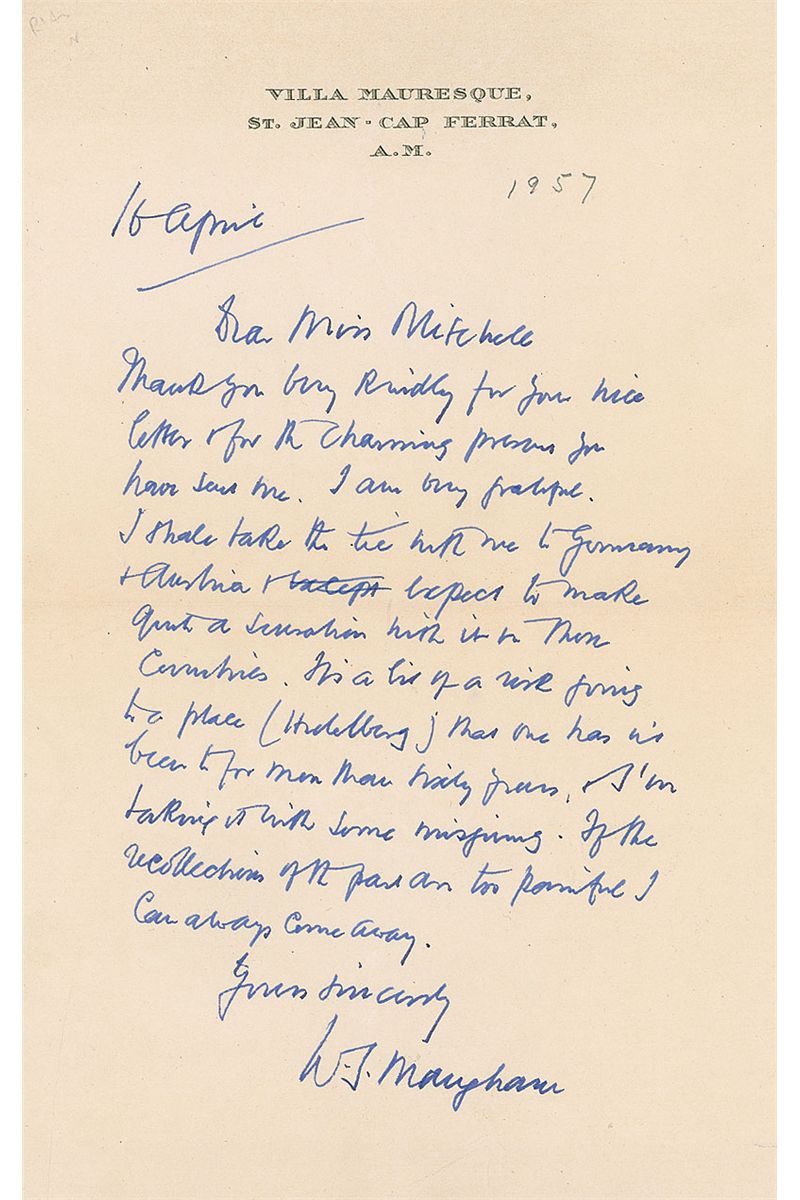 VILLA MAURESQUE,
ST. JEAN - CAP FERRAT,
A.M.
1957
16 April
Dear Miss Mitchell
Thank you very kindly for your nice
letter & for the charming present you
have sent me. I am very grateful.
I shall take the tie with me to Germany
& Austria & except expect to make
quite a sensation with it in those
countries. It's a bit of a risk going
to a place (Heidelberg) that one has n't
been to for more than sixty years, & I'm
taking it with some misgiving. If the
recollections of the past are too painful I
can always come away.
Yours sincerely
W.S. Maugham